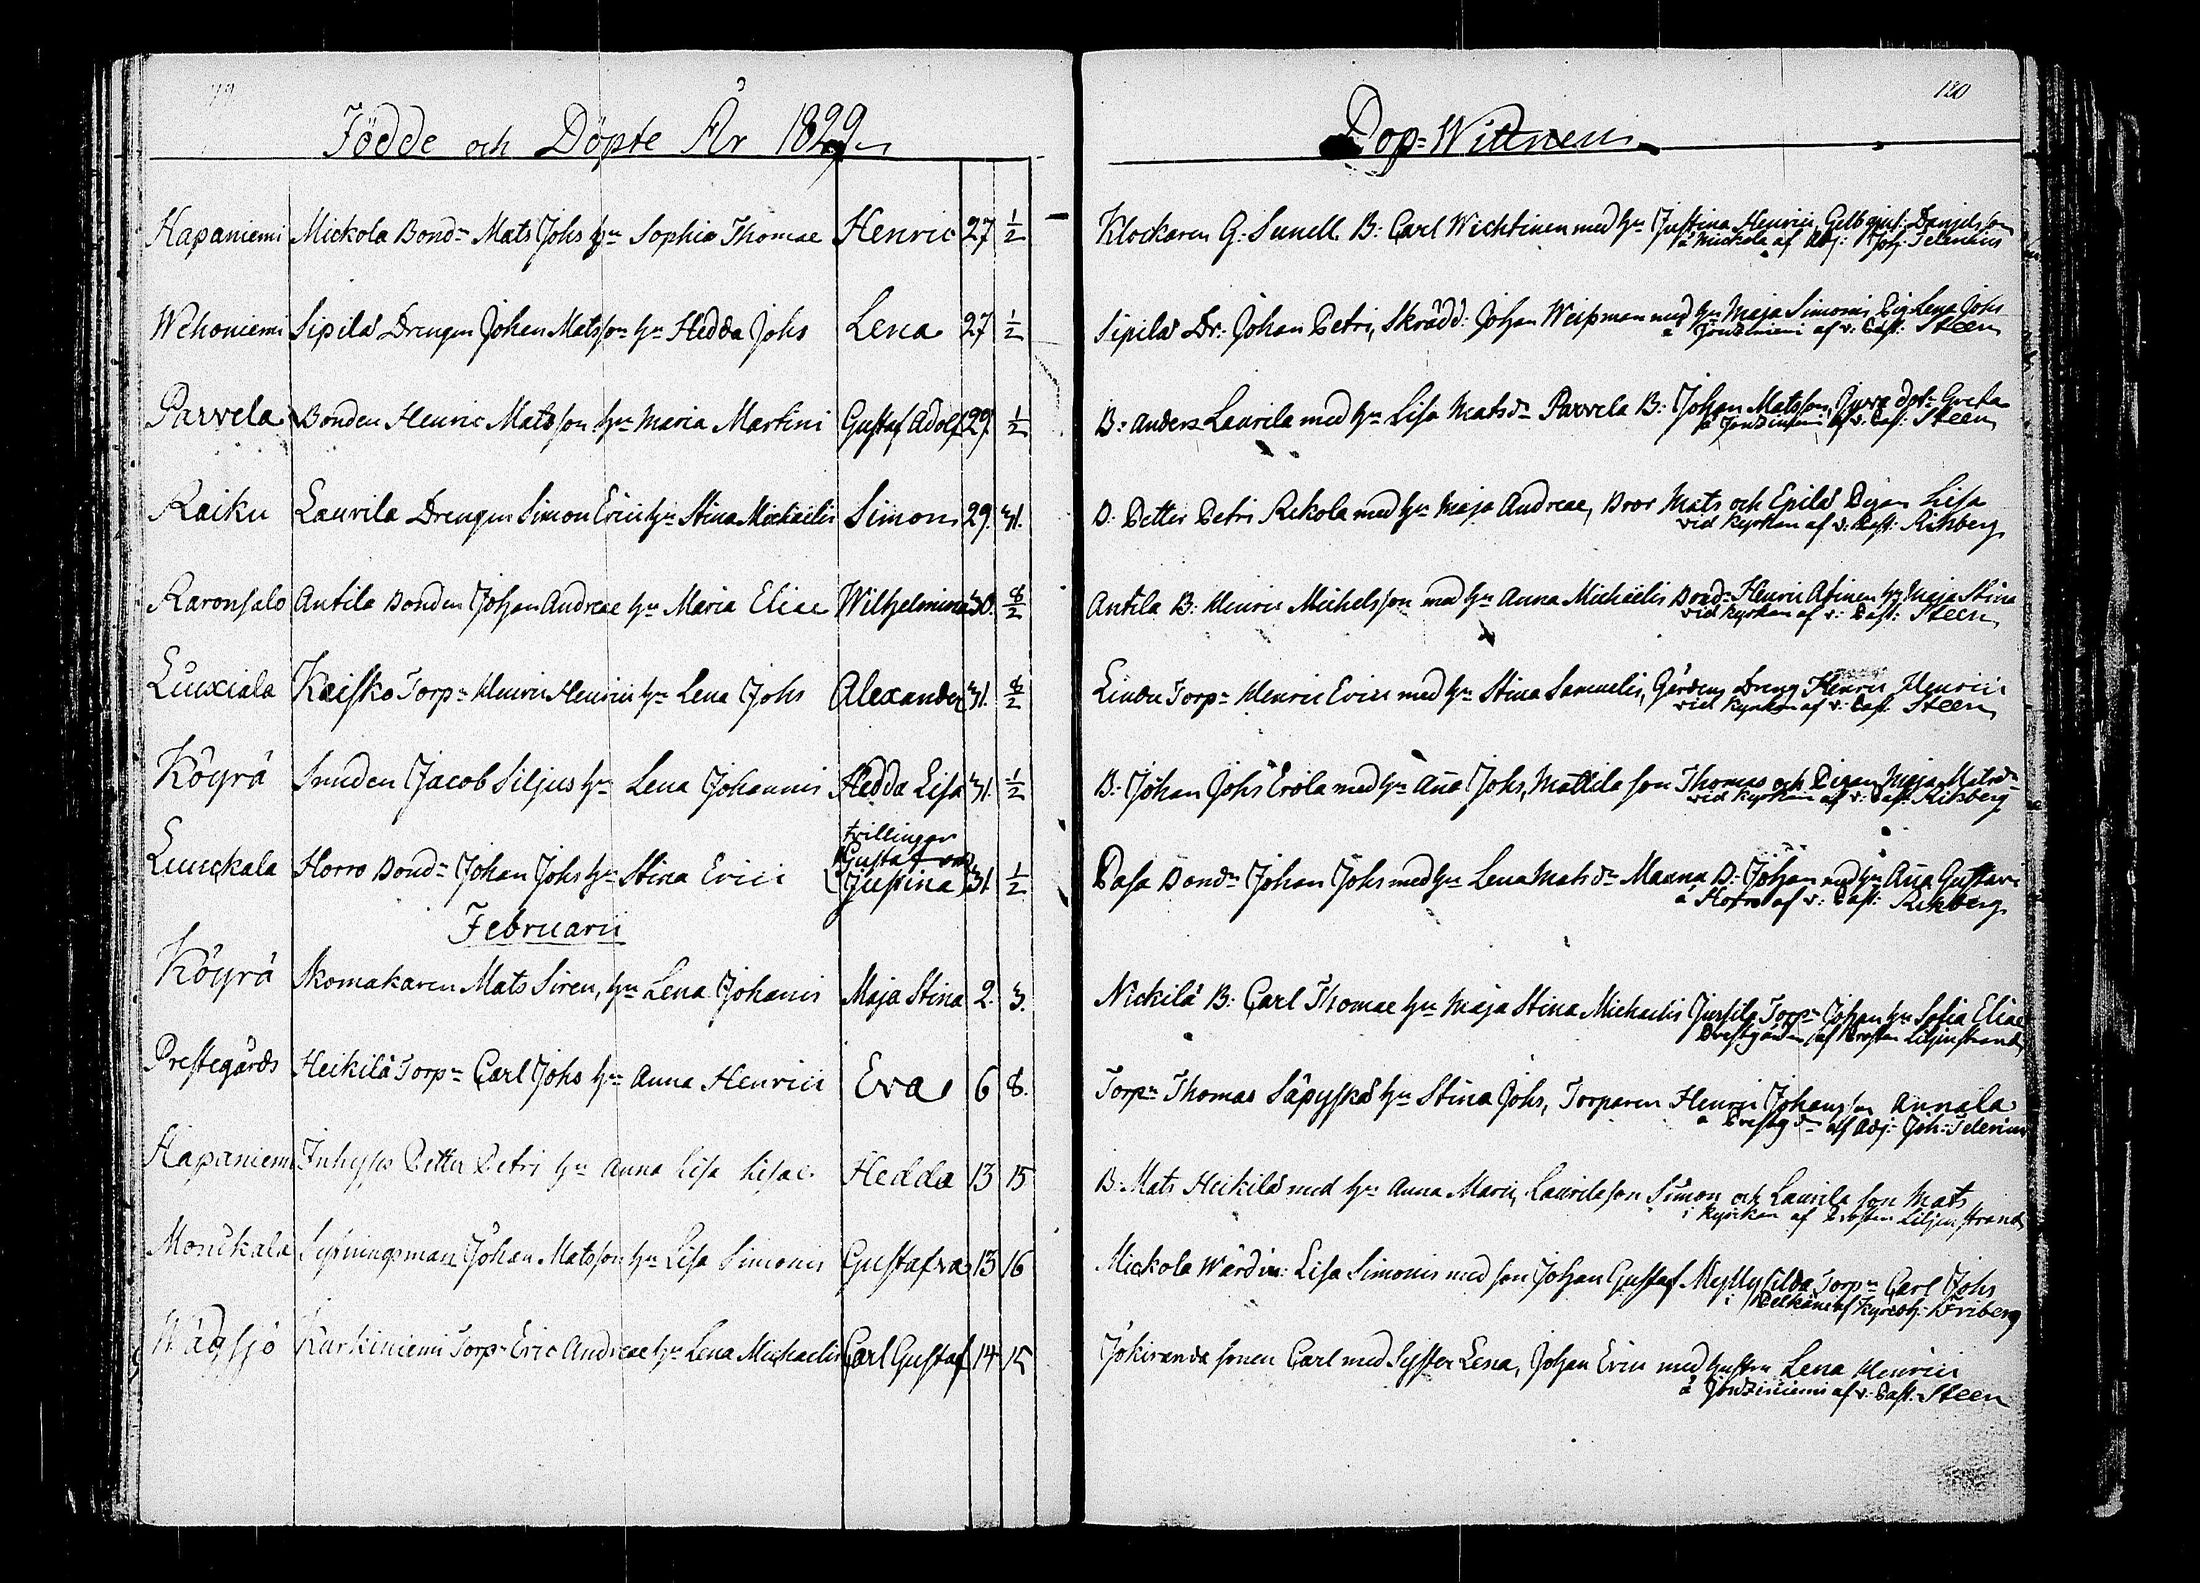 179
Födde och Döpte År 1829
Hapaniemi Mickola Bond:n Mats Johs hu Sophia Thomae Henric 27 1/2
Wehoniemi Sipilä Drengen Johan Matsson hu Hedda Johs Lena 27 1/2
Parvela Bonden Henric Matsson hu Maria Martini Gustaf Adolf 29. 1/2
Raiku Laurila Drengen Simon Erici hu Stina Michaelis Simon 29. 31.
Raronsalo Antila Bonden Johan Andreae hu Maria Eliae Wilhelmina 30. 8/2
Liuxiala Kaisko Torp:n Henric Henrici hu Lena Johs Alexander 31. 8/2
Köyrä Smeden Jacob Siljus hu Lena Johannis Hedda Lisa 31. 1/2
tvillingar
Gustaf och
Lumckala Horro Bond:n Johan Johs hu Stina Erici Justina 31. 1/2
Februarii
Köyrä Skomakaren Mats Siren, hu Lena Johanis Maja Stina 2. 3.
Prestegårds Heikilä Torp:n Carl Johs hu Anna Henrici Eva 6 8.
Hapaniemi Inhyses Petter Petri hu Anna Lisa Hedda 13 15
Monikala Johan Matsson hu Lisa Simonis Gustafva 13 16
Wägsjö Kurkiniemi Torp:n Eric Andreae hu Lena Michaelis Carl Gustaf 14 15
180
Dop-Wittnen
Klockaren G: Sunell. B: Carl Wichtinen med hu Justina Henrici, Danielsson
å Mickola af Adj: Joh: Telenius
Sipilä Dr: Johan Petri, Skrädd: Johan Weissman med hu Maja Simonis Pig. Lena Johs
å Jouziniemi af v: Past: Steen
B: Anders Laurila med hu Lisa Matsd:r Parvela B: Johan Matsson, dotr Greta
å Jouziniemi af v: Past: Steen
B. Petter Petri Rekola med hu Maja Andreae, Bror Mats och Epilä Pigan Lisa
vid kyrkan af v: Past: Rihberg
Antila B: Henric Michelsson med hu Anna Michaelis Henric Atinen hu Maja Stina
vid kyrkan af v: Past: Steen
Torp:n Henric Erici med hu Stina Samuelis, Gårdens Dreng Henric Henrici
vid kyrkan af v: Past: Steen
B: Johan Johs Erola med hu Aña Johs, Mattila son Thomas och Pigan Maja Matsd:r
vid kyrkan af v: Past: Rihberg
Pasa Bond:n Johan Johs med hu Lena Matsd:r Maana B: Johan med hu Aña Gustavi
å Horro af v: Past: Rihberg
Nickilä B: Carl Thomae hu Maja Stina Michaelis Jussila Torp:n Johan hu Sofia Eliae
Prestgården af Prosten Liljenstrand
Torp:n Thomas Säpyskä hu Stina Johs, Torparen Henric Johansson Annala
å Prestg:n af Adj: Joh: Telenius
B: Mats Heikilä med hu Anna Marci, Laurila son Simon och Laurila son Mats
i kyrckan af Prosten Liljenstrand
Mickola Wärdin: Lisa Simonis med son Johan Gustaf Myllysilda Torp:n Carl Johs
i Pelkäne af Kyrcoh: Friberg
Jokiranda sonen Carl med Syster Lena, Johan Erici med hustru Lena Henrici
å Jouziniemi af v: Past: Steen